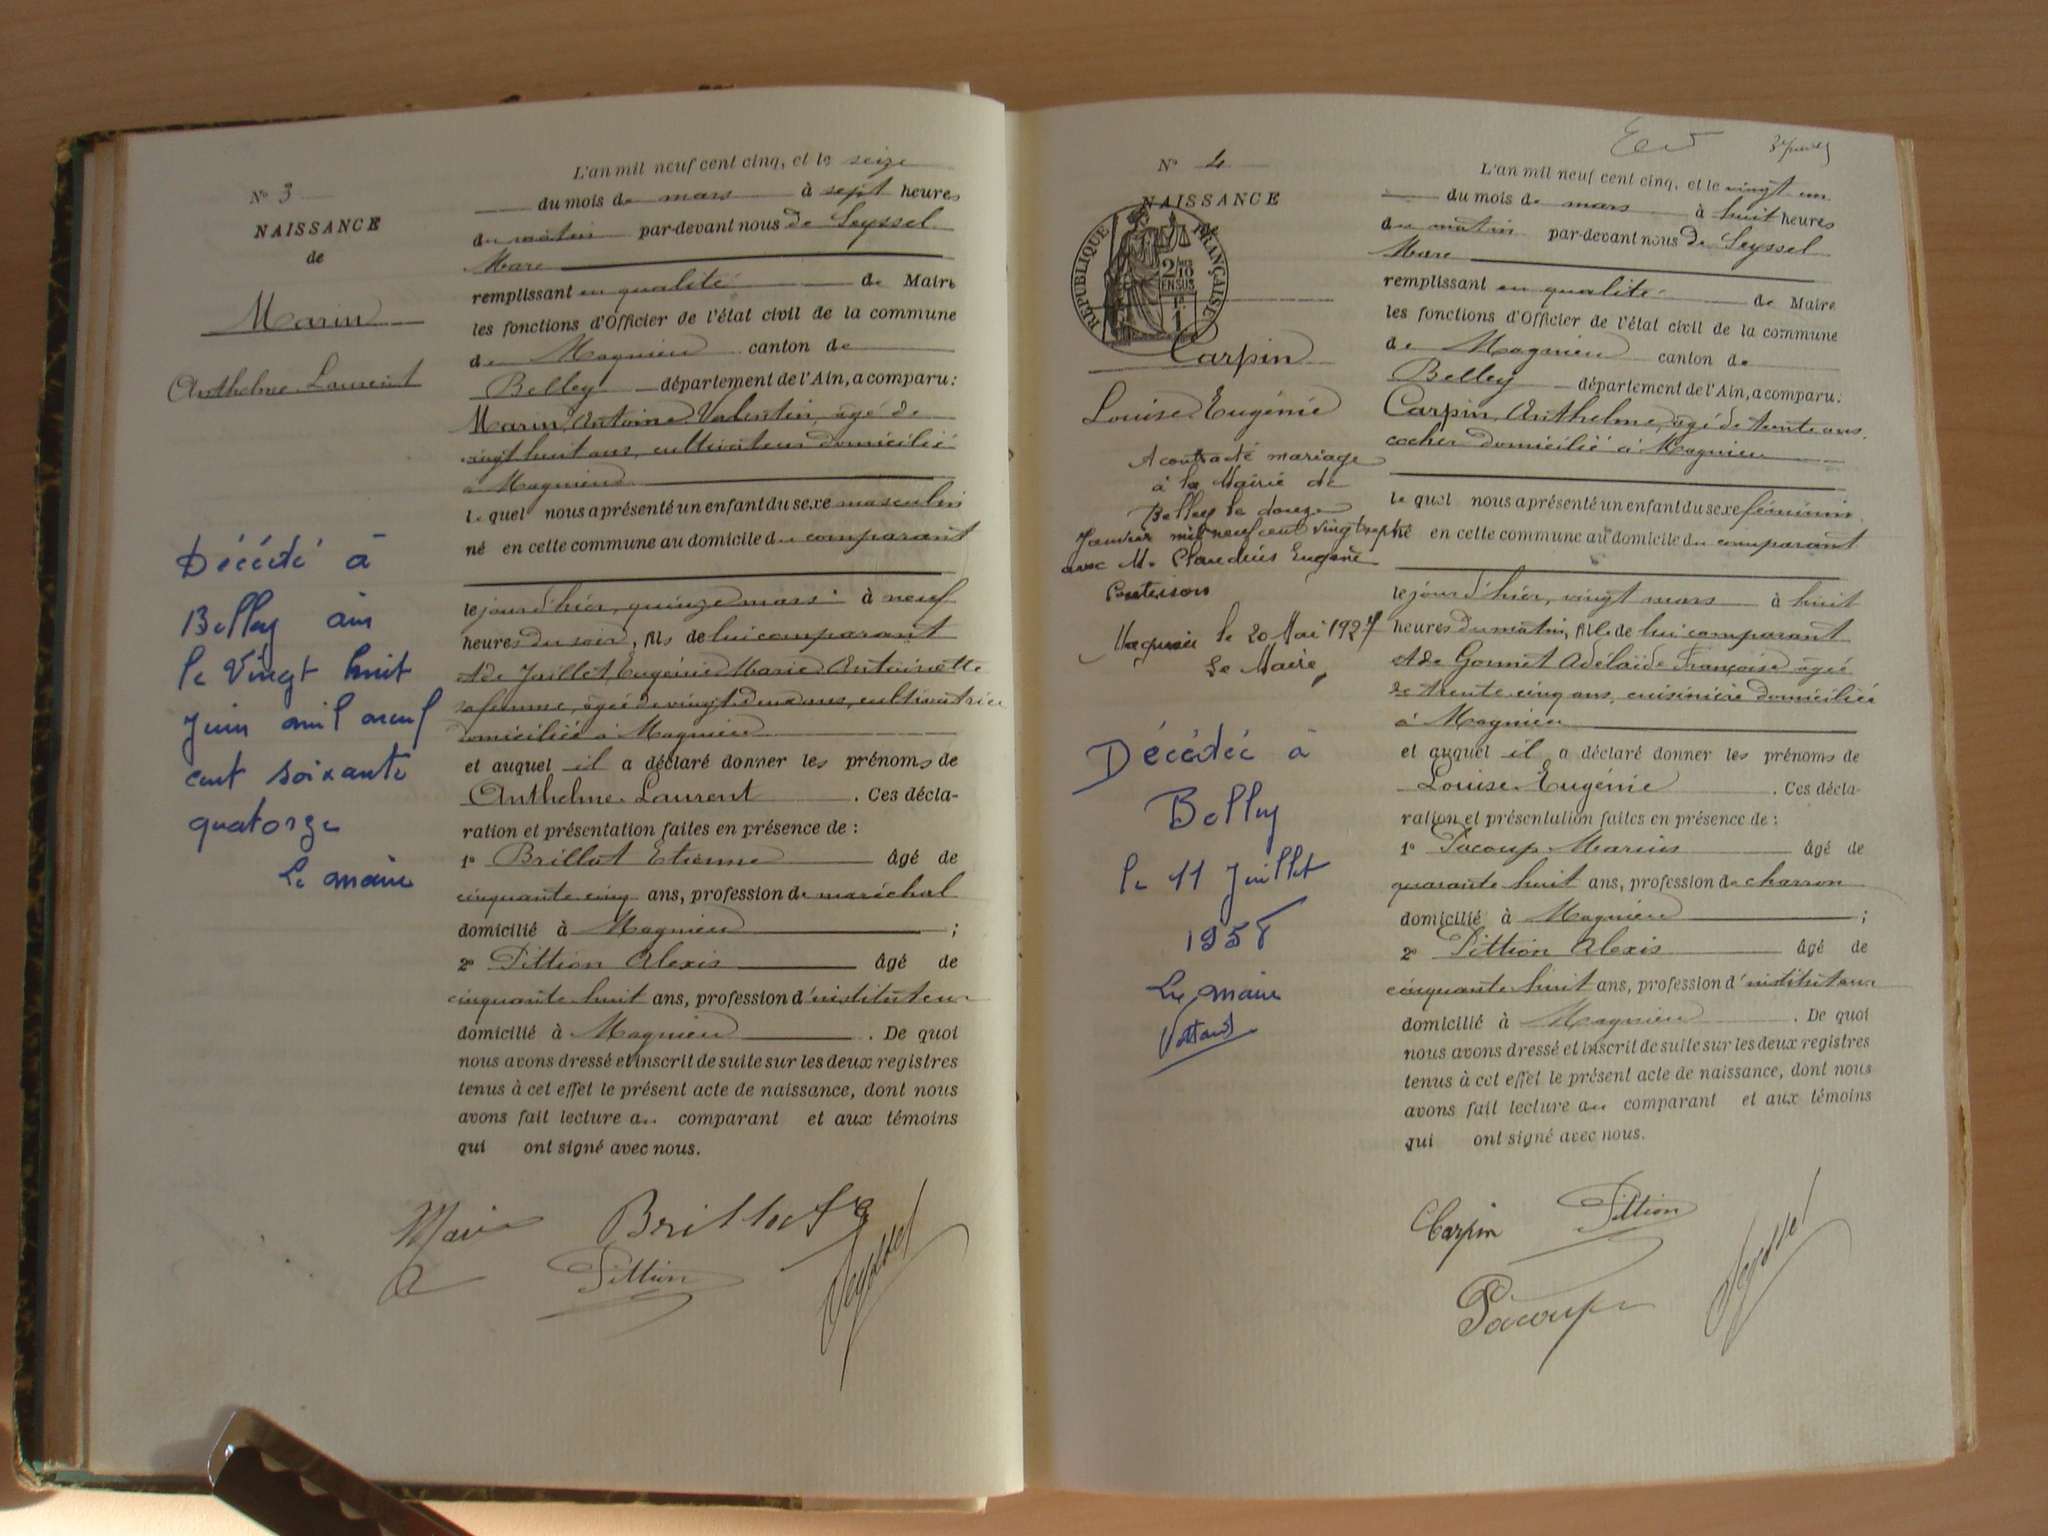 N° 3
NAISSANCE
de
Marin
Anthelme Laurent
Décédé à
Belley ain
le Vingt huit
Juin mil neuf
cent soixante
quatorze
Le maire
L'an mil neuf cent cinq, et le seize
du mois de mars à sept heures
du matin par-devant nous de Seyssel
Marc
remplissant en qualité de Maire
les fonctions d'Officier de l'état civil de la commune
de Magnieu canton de
Belley département de l'Ain, a comparu:
Marin, Antoine Valentin, âgé de
vingt huit ans, cultivateur domicilié
à Magnieu
le quel nous a présenté un enfant du sexe masculin
né en cette commune au domicile du comparant
le jour d'hier, quinze mars à neuf
heures du soir, fils de lui comparant
et de Juillet Eugénie Marie Antoinette
sa femme, âgée de vingt deux ans, cultivatrice
domiciliée à Magnieu
et auquel il a déclaré donner les prénoms de
Anthelme Laurent. Ces décla-
ration et présentation faites en présence de:
1° Brillat Etienne âgé de
cinquante cinq ans, profession de maréchal
domicilié à Magnieu;
2° Pittion Alexis âgé de
cinquante huit ans, profession d'instituteur
domicilié à Magnieu. De quoi
nous avons dressé et inscrit de suite sur les deux registres
tenus à cet effet le présent acte de naissance, dont nous
avons fait lecture au comparant et aux témoins
qui ont signé avec nous.
Marin Brillat
Pittion
N° 4
NAISSANCE
RÉPUBLIQUE FRANÇAISE
2/10
EN SUS
Carpin
Louise Eugénie
A contracté mariage
à la Mairie de
Belley le douze
Janvier mil neuf cent vingt sept
avec M. Claudius Eugène
Magnieu le 20 Mai 1927
Le Maire,
Décédée à
Belley
le 11 Juillet
1958
Le maire
L'an mil neuf cent cinq, et le vingt un
du mois de mars à huit heures
du matin par-devant nous de Seyssel
Marc
remplissant en qualité de Maire
les fonctions d'Officier de l'état civil de la commune
de Magnieu canton de
Belley département de l'Ain, a comparu:
Carpin, Anthelme, âgé de trente ans,
cocher domicilié à Magnieu
le quel nous a présenté un enfant du sexe féminin
né en cette commune au domicile du comparant
le jour d'hier, vingt mars à huit
heures du matin, fille de lui comparant
et de Gonnet Adélaïde Françoise âgée
de trente cinq ans, cuisinière domiciliée
à Magnieu
et auquel il a déclaré donner les prénoms de
Louise Eugénie. Ces décla-
ration et présentation faites en présence de:
1° Pacoup Marius âgé de
quarante huit ans, profession de charron
domicilié à Magnieu;
2° Pittion Alexis âgé de
cinquante huit ans, profession d'instituteur
domicilié à Magnieu. De quoi
nous avons dressé et inscrit de suite sur les deux registres
tenus à cet effet le présent acte de naissance, dont nous
avons fait lecture au comparant et aux témoins
qui ont signé avec nous.
Carpin Pittion
Pacoup